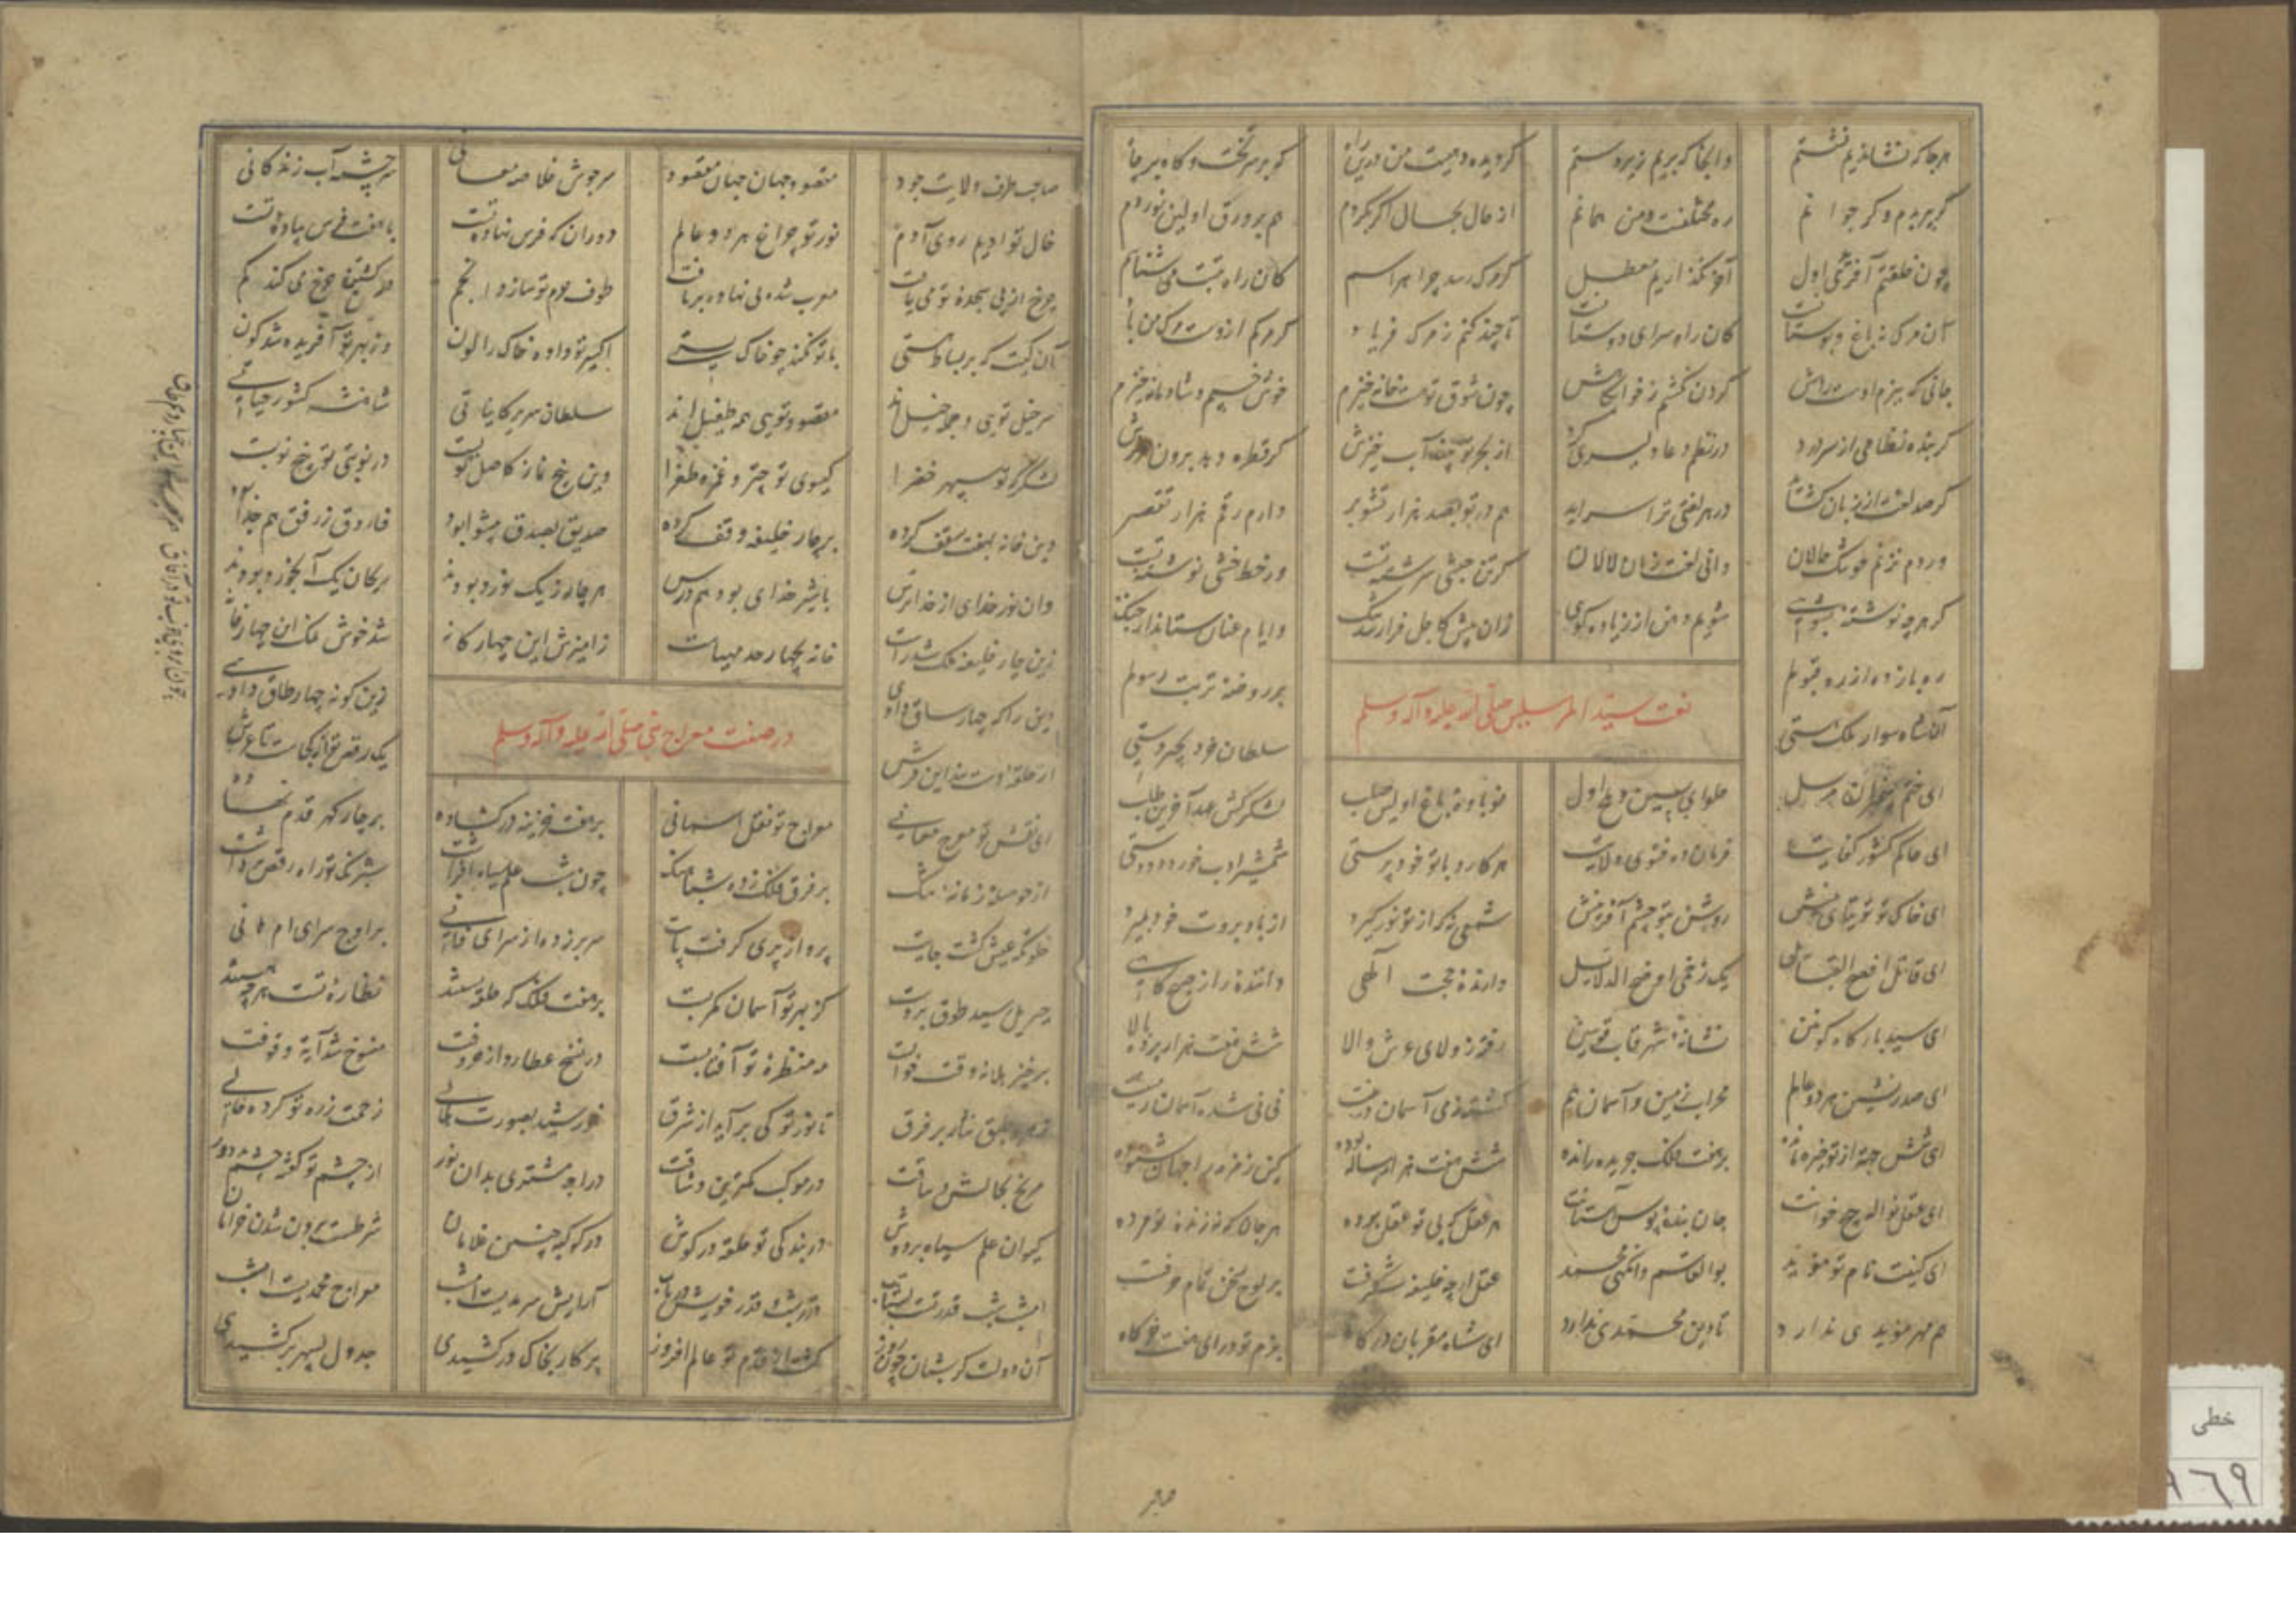 هرجا که نشاندیم نشستم وانجا که بریم زیردستم گردیده رهیت من درین راه گه بر سر تخت و گاه بر چاه
گر پیر بوم و گر جوانم ره مختلفست و من همانم از حال بحال اگر بگردم هم بر ورق اولین نوردم
چون خلقتم آفریدی اول آخر نگذاریم معطل گر مرگ رسد چرا هراسم کان راه بتست می شناسم
آن مرگ نه باغ و بوستانست کان راه سرای دوستانست تا چند کنم ز مرگ فریاد گر مرگم ازوست مرگ من باد
جانی که ببزم اوست راهش گردن نکشم ز خوابگاهش چون شوق تو هست خانه خیزم خوش خسبم و شادمانه خیزم
گر بنده نظامی از سر درد در نظم دعا دلیری کرد از بحر تو آب خیزش گر قطره دهد برون
گر صد لغت از زبان گشاید در هر لغتی ترا سراید هم در تو بصد هزار تشویر دارم رقم هزار تقصیر
ور دم نزنم چو تنگ حالان دانی لغت زبان لالان گر تن حبشی سرشته تست ور خط ختنی نوشته تست
گر هرچه نوشته بشوئی شویم دهن از زیاده گوئی زان پیش کاجل فرا رسد تنگ وایام عنان ستاند از چنگ
ره باز ده از ره قبولم بر روضه تربت رسولم
نعت سید المرسلین صلی الله علیه و آله وسلم
ای شاه سوار ملک هستی سلطان خرد بچیره دستی
ای ختم پیغمبران مرسل حلوای پسین و ملح اول نوباوه باغ اولین صلب لشکرکش عهد آخرین طلب
ای حاکم کشور کفایت فرمان ده فتوی ولایت هرکارد با تو خودپرستی شمشیر ادب خورد دودستی
ای خاک تو توتیای بینش روشن بتو چشم آفرینش شمعی که از تو نور گیرد از باد بروت خود بمیرد
ای قائل افصح القبائل یک زخمی اوضح الدلائل دارنده حجت الهی داننده راز صبحگاهی
ای سید بارگاه کونین نشانه شهر قاب قوسین رفته ز ولای عرش والا شش هفت هزار پرده بالا
ای صدرنشین هر دو عالم محراب زمین و آسمان هم گشته زمی آسمان ز دینت نی نی شده آسمان زمینت
ای شش جهة از تو خیره مانده بر هفت فلک جریده رانده شش هفت هزار سال بوده کین زمزمه را جهان شنوده
ای عقل نواله پیچ خوانت جان بنده نویس آستانت هر عقل که بی تو عقل برده هر جان که نه زنده تو مرده
ای کنیت نام تو مؤید بوالقاسم وانگهی محمد عقل ارچه خلیفه شگرفت بر لوح سخن تمام حرفت
هم مهر مؤیدی ندارد تا دین محمدی ندارد ای شاه مقربان درگاه بزم تو ورای هفت خرگاه
صاحب طرف ولایت جود مقصود جهان جهان مقصود سر جوش خلاصه معانی سرچشمه آب زندگانی
خاک تو ادیم روی آدم نور تو چراغ هر دو عالم دوران که فرس نهاده تست با هفت فرس پیاده تست
چرخ از پی سجده تو می یافت طوف حرم تو سازد انجم در گشتن چرخ می کند گم
آن کیست که بر بساط هستی با تو نکند چو خاک پستی اکسیر تو داده خاک را لون وز بهر تو آفریده شد کون
سر خیل توی و جمله خیل‌اند مقصود توی همه طفیل‌اند سلطان سریر کایناتی شاهنشه کشور حیاتی
لشکرگه تو سپهر خضرا گیسوی تو چتر و غمزه طغرا وین پنج نماز کاصل توبت در نوبتی تو پنج نوبت
وین خانه هفت سقف کرده بر چار خلیفه وقف کرده صدیق بصدق پیشوا بود فاروق ز فرق هم جدا بود
وان نور خدای از خداترس با شیر خدای بود هم درس هر چار ز یک نورد بودند ریحان یک آبخورد بودند
زین چار خلیفه ملک شد راست خانه بچهار حد مهیاست زامیزش این چهارگانه شد خوش نمک این چهارخانه
دین را که چهار ساق دادی زین گونه چهار طاق دادی
در صفت معراج نبی صلی الله علیه و آله وسلم
از حلقه دست بند این فرش یک رقص تو از کجاست تا عرش
ای نقش تو معرج معانی معراج تو نقل آسمانی بر هفت خزینه در گشاده بر چار گهر قدم نهاده
از حوصله زمانه تنگ بر فرق فلک زده شباهنگ چون شب علم سیاه افراشت شبرنگ تو راه رقص برداشت
خلوتگه عرش گشت جایت پرواز پری گرفت پایت سر برزده از سرای فانی بر اوج سرای ام هانی
جبریل رسید طوق بردست کز بهر تو آسمان کمر بست بر هفت فلک که حلقه بستند نظاره تست هرچه هستند
برخیز هلا نه وقت خوابست مه منتظر تو آفتابست در نسخ عطارد از حروفت منسوخ شد آیة وقوفت
زهره طبق نثار بر فرق تا نور تو کی برآید از شرق خورشید بصورت هلالی زحمت زره تو کرده خالی
مریخ بجالش وثاقت در موکب کمترین وشاقت دراجه مشتری بدان نور از چشم تو گفته چشم بد دور
کیوان علم سیاه بر دوش در بندگی تو حلقه در گوش در کوکبه چنین غلامان شرطست برون شدن خرامان
امشب شب قدر تست بشتاب قدر شب قدر خویش دریاب آرایش سرمدیست امشب معراج محمدیست امشب
آن دولت کز شبان چون روز گشت از قدم تو عالم افروز پرگار بخاک درکشیدی جدول بسپهر برکشیدی
صابر
خطی